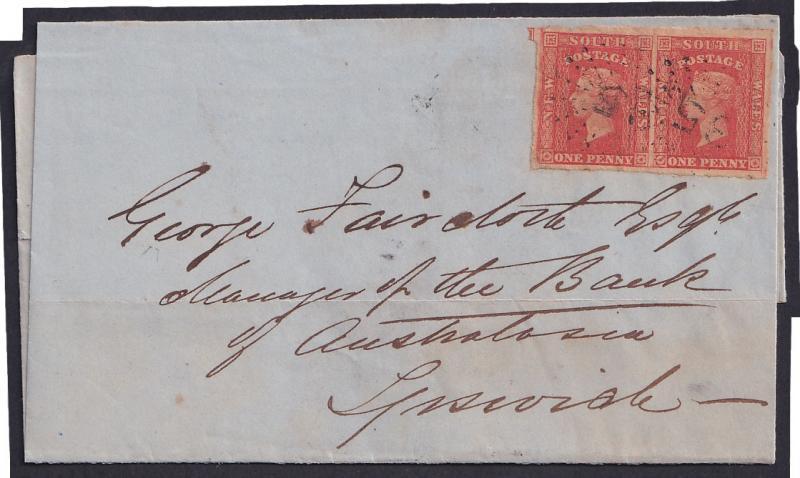 SOUTH SOUTH
POSTAGE POSTAGE
NEW WALES WALES
ONE PENNY ONE PENNY
George Faircloth Esq
Manager of the Bank
of Australasia
Ipswich —